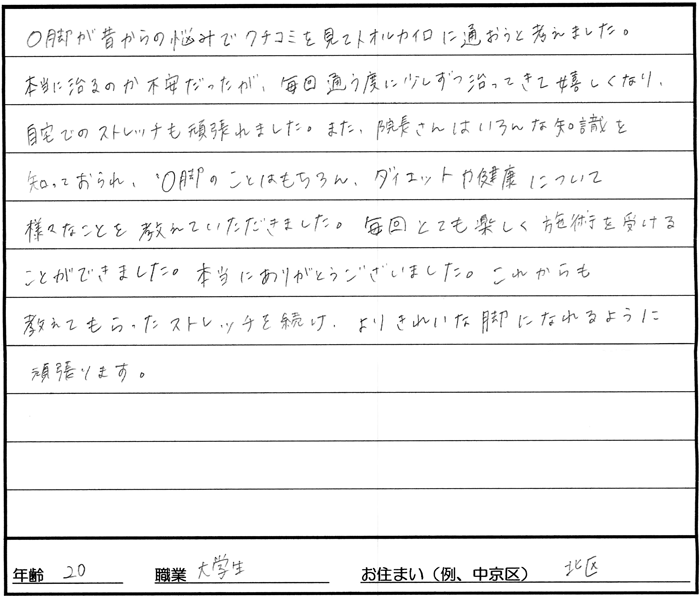 O脚が昔からの悩みでクチコミを見てトオルカイロに通おうと考えました。
本当に治るのか不安だったが、毎回通う度に少しずつ治ってきて嬉しくなり、
自宅でのストレッチも頑張れました。また、院長さんはいろんな知識を
知っておられ、O脚のことはもちろん、ダイエットや健康について
様々なことを教えていただきました。毎回とても楽しく施術を受ける
ことができました。本当にありがとうございました。これからも
教えてもらったストレッチを続け、よりきれいな脚になれるように
頑張ります。
年齢 20 職業 大学生 お住まい（例、中京区） 北区